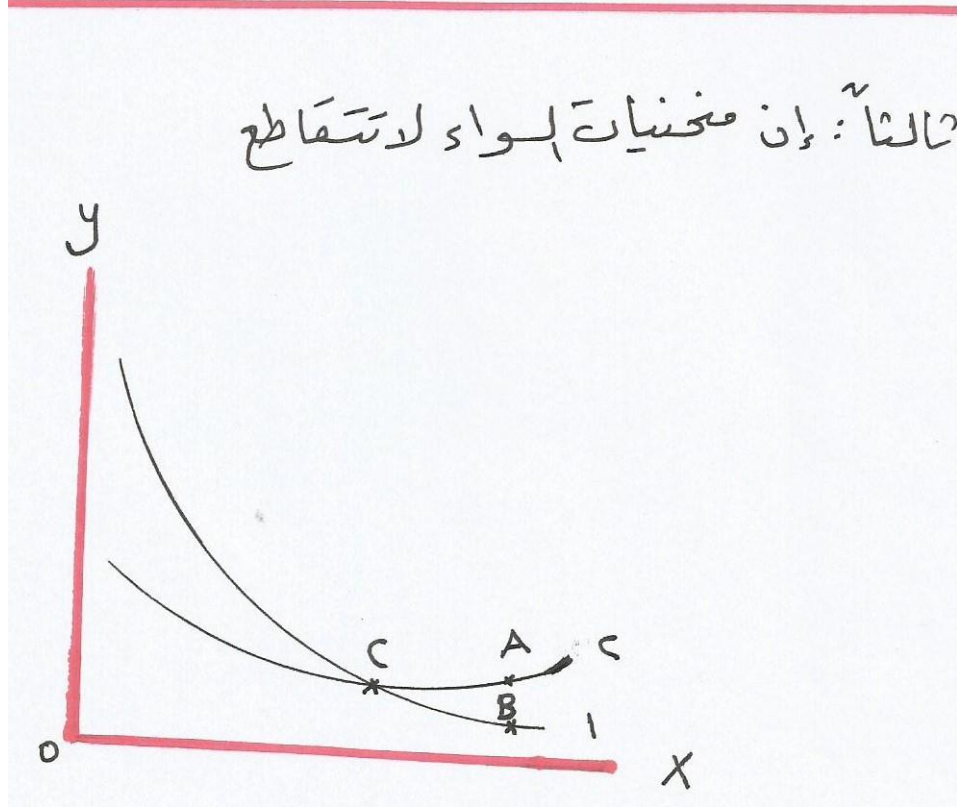 ثالثاً : إن منحنيات السواء لا تتقاطع
y
C A ٢
B ١
O X